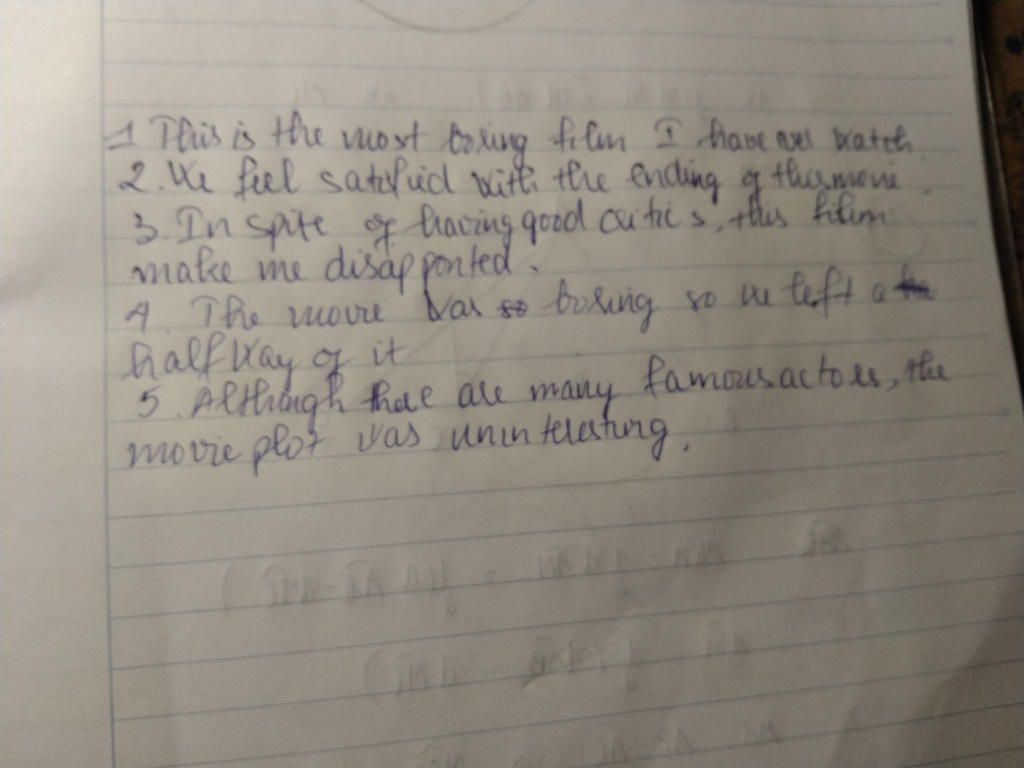 1 This is the most boring film I have ever watch.
2. We feel satisfied with the ending of this movie.
3. In spite of having good critics, this film
make me disapponted.
4. The movie was so boring so we left a
half way of it
5. Although there are many famous actores, the
movie plot was uninteresting.